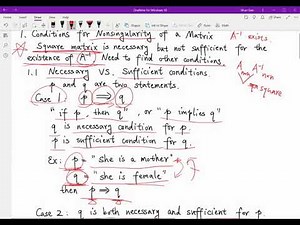 1. Conditions for Nonsingularity of a Matrix
A⁻¹ exists
Square matrix is necessary but not sufficient for the
existence of A⁻¹ Need to find other conditions.
A
A⁻¹
non
square
1.1 Necessary VS. Sufficient conditions
p and q are two statements.
Case 1 p ⟹ q
"if p, then q", or "p implies q"
q is necessary condition for p.
p is sufficient condition for q.
Ex: p = "she is a mother"
q = "she is female"
then p ⟹ q
Case 2: q is both necessary and sufficient for p.